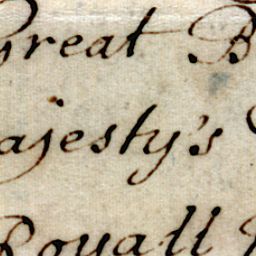 Great B
ajesty's
Royall